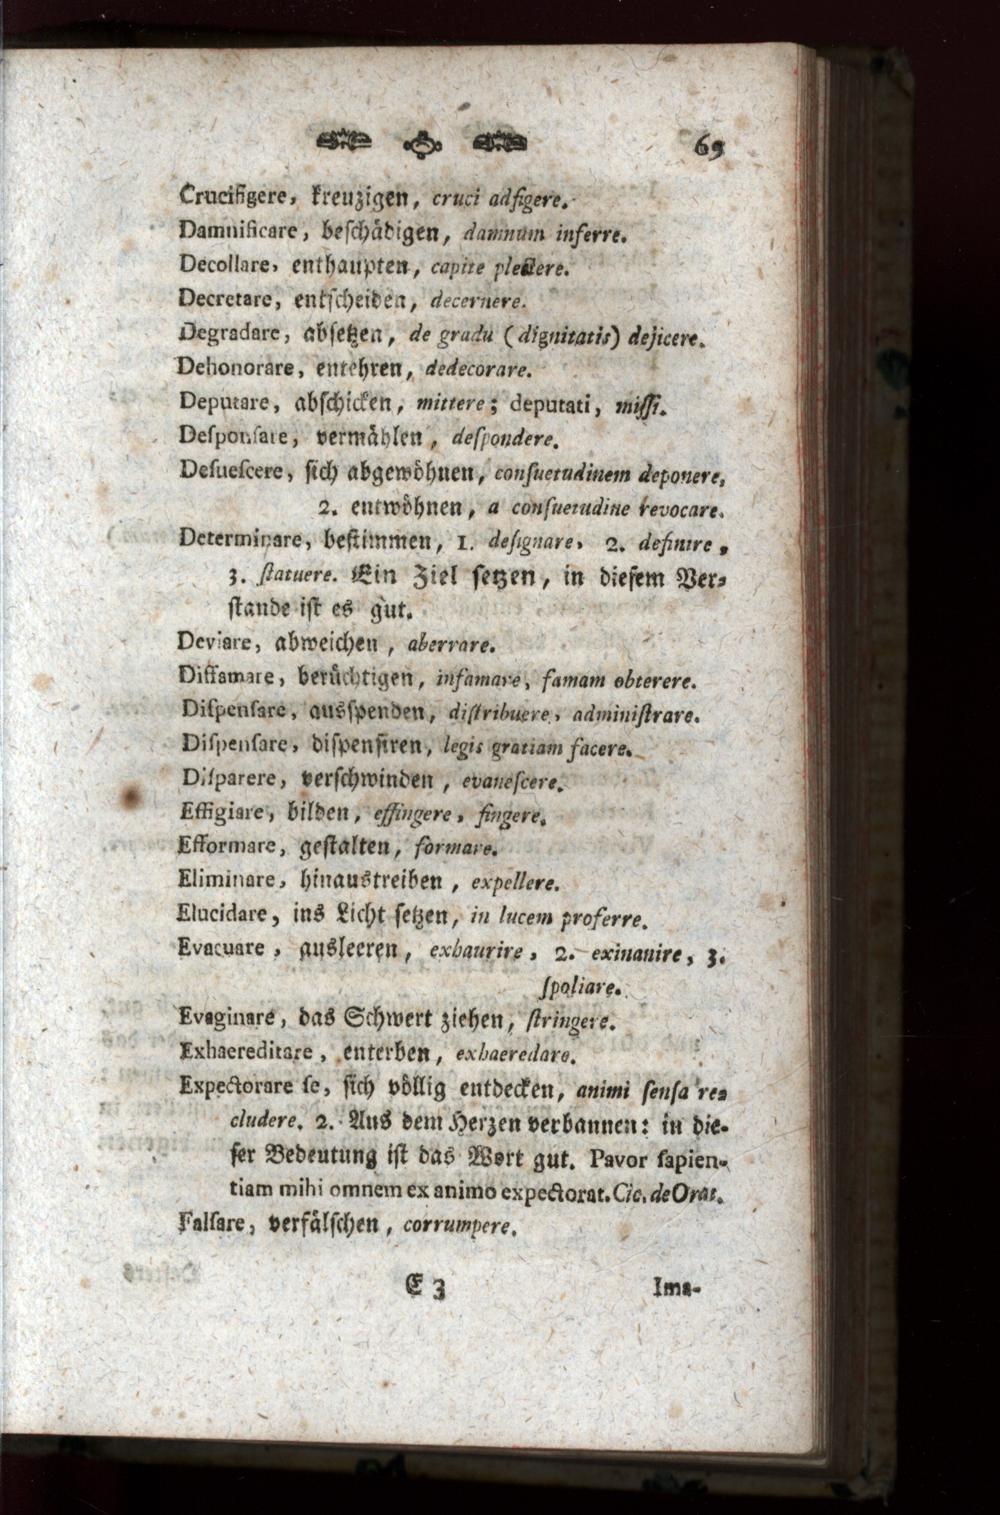 69
Crucifigere, kreuzigen, cruci adfigere.
Damnificare, beſchådigen, damnum inferre.
Decollare, enthaupten, capite plectere.
Decretare, entſcheiden, decernere.
Degradare, abſetzen, de gradu (dignitatis) dejicere.
Dehonorare, entehren, dedecorare.
Deputare, abſchicken, mittere; deputati, miſſi.
Deſponſare, vermåhlen, deſpondere.
Deſueſcere, ſich abgewôhnen, conſuetudinem deponere,
2. entwôhnen, a conſuetudine revocare.
Determinare, beſtimmen, 1. deſignare, 2. definire,
3. ſtatuere. Ein Ziel ſetzen, in dieſem Ver⸗
ſtande iſt es gut.
Deviare, abweichen, aberrare.
Diffamare, berůchtigen, infamare, famam obterere.
Diſpenſare, ausſpenden, diſtribuere, adminiſtrare.
Diſpenſare, diſpenſiren, legis gratiam facere.
Diſparere, verſchwinden, evaneſcere.
Effigiare, bilden, effingere, fingere.
Efformare, geſtalten, formare.
Eliminare, hinaustreiben, expellere.
Elucidare, ins Licht ſetzen, in lucem proferre.
Evacuare, ausleeren, exhaurire, 2. exinanire, 3.
ſpoliare.
Evaginare, das Schwert ziehen, ſtringere.
Exhaereditare, enterben, exhaeredare.
Expectorare ſe, ſich vôllig entdecken, animi ſenſa re⸗
cludere. 2. Aus dem Herzen verbannen: in die-
ſer Bedeutung iſt das Wort gut. Pavor ſapien-
tiam mihi omnem ex animo expectorat. Cic. de Orat.
Falſare, verfålſchen, corrumpere.
E 3
Ima-